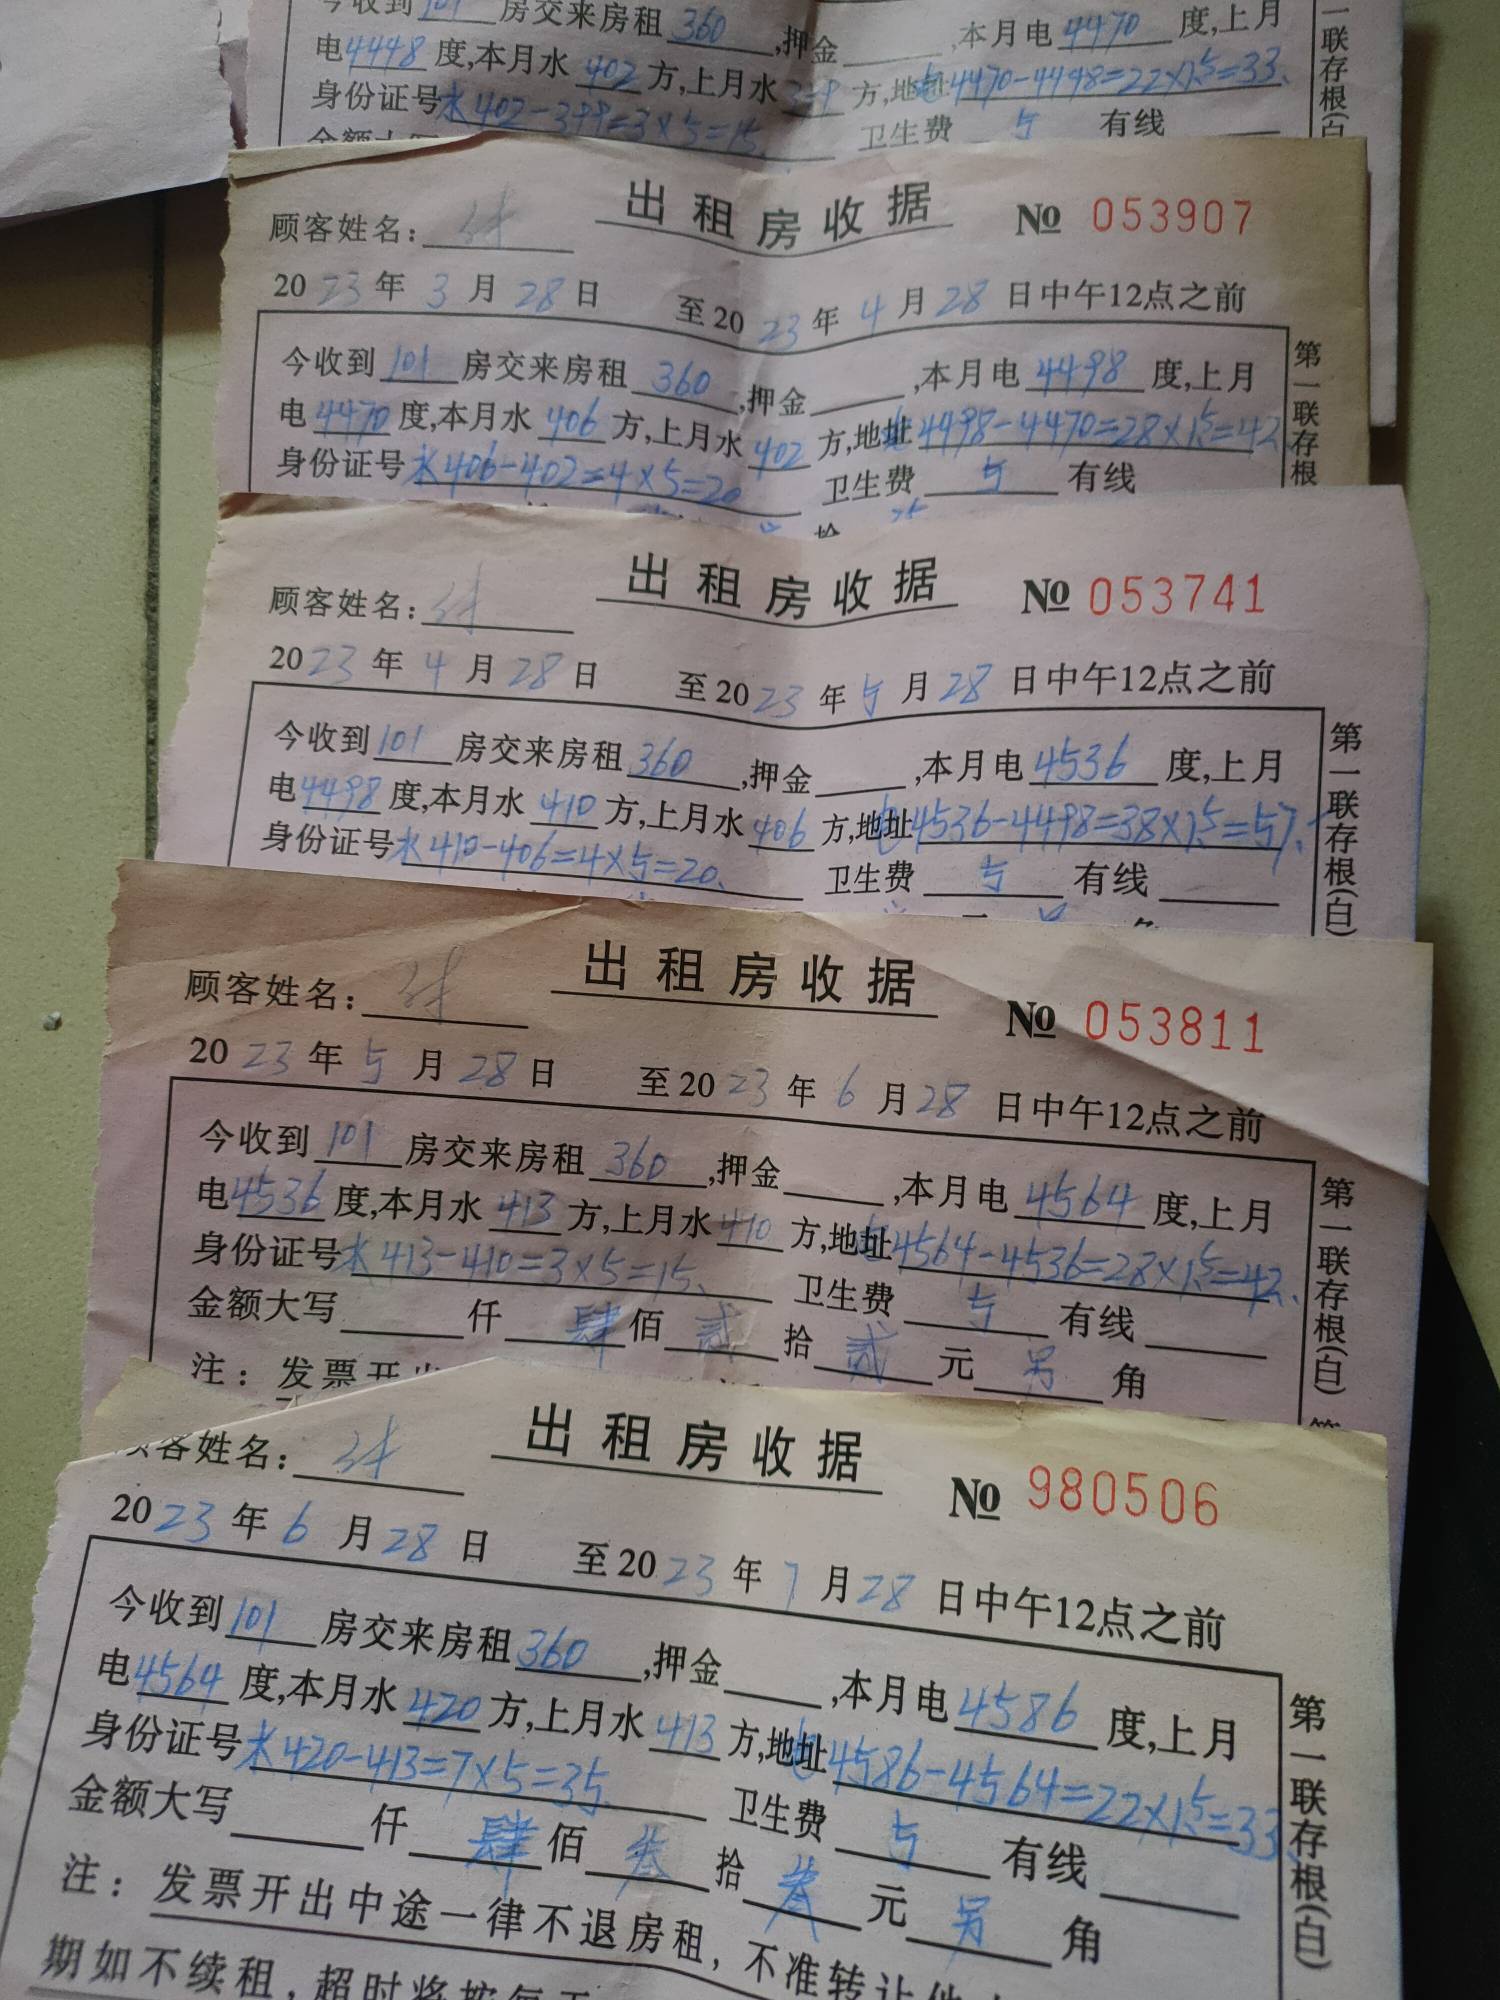 今收到101房交来房租360,押金 ,本月电4470度,上月
电4448度,本月水402方,上月水399方,地址电4470-4448=22×1.5=33.
身份证号水402-399=3×5=15. 卫生费5有线
第一联存根(白
出租房收据 № 053907
顾客姓名:
2023年3月28日 至2023年4月28日中午12点之前
今收到101房交来房租360,押金 ,本月电4498度,上月
电4470度,本月水406方,上月水402方,地址电4498-4470=28×1.5=42.
身份证号水406-402=4×5=20 卫生费5有线
第一联存根
拾
出租房收据 № 053741
顾客姓名:
2023年4月28日 至2023年5月28日中午12点之前
今收到101房交来房租360,押金 ,本月电4536度,上月
电4498度,本月水410方,上月水406方,地址电4536-4498=38×1.5=57.
身份证号水410-406=4×5=20. 卫生费5有线
第一联存根(白)
出租房收据 № 053811
顾客姓名:
2023年5月28日 至2023年6月28日中午12点之前
今收到101房交来房租360,押金 ,本月电4564度,上月
电4536度,本月水413方,上月水410方,地址电4564-4536=28×1.5=42.
身份证号水413-410=3×5=15. 卫生费5有线
金额大写 仟肆佰贰拾贰元另角
注:发票开出
第一联存根(白)
出租房收据 № 980506
顾客姓名:
2023年6月28日 至2023年7月28日中午12点之前
今收到101房交来房租360,押金 ,本月电4586度,上月
电4564度,本月水420方,上月水413方,地址电4586-4564=22×1.5=33
身份证号水420-413=7×5=35. 卫生费5有线
金额大写 仟肆佰叁拾叁元另角
注:发票开出中途一律不退房租,不准转让他
期如不续租,超时将按每天
第一联存根(白)